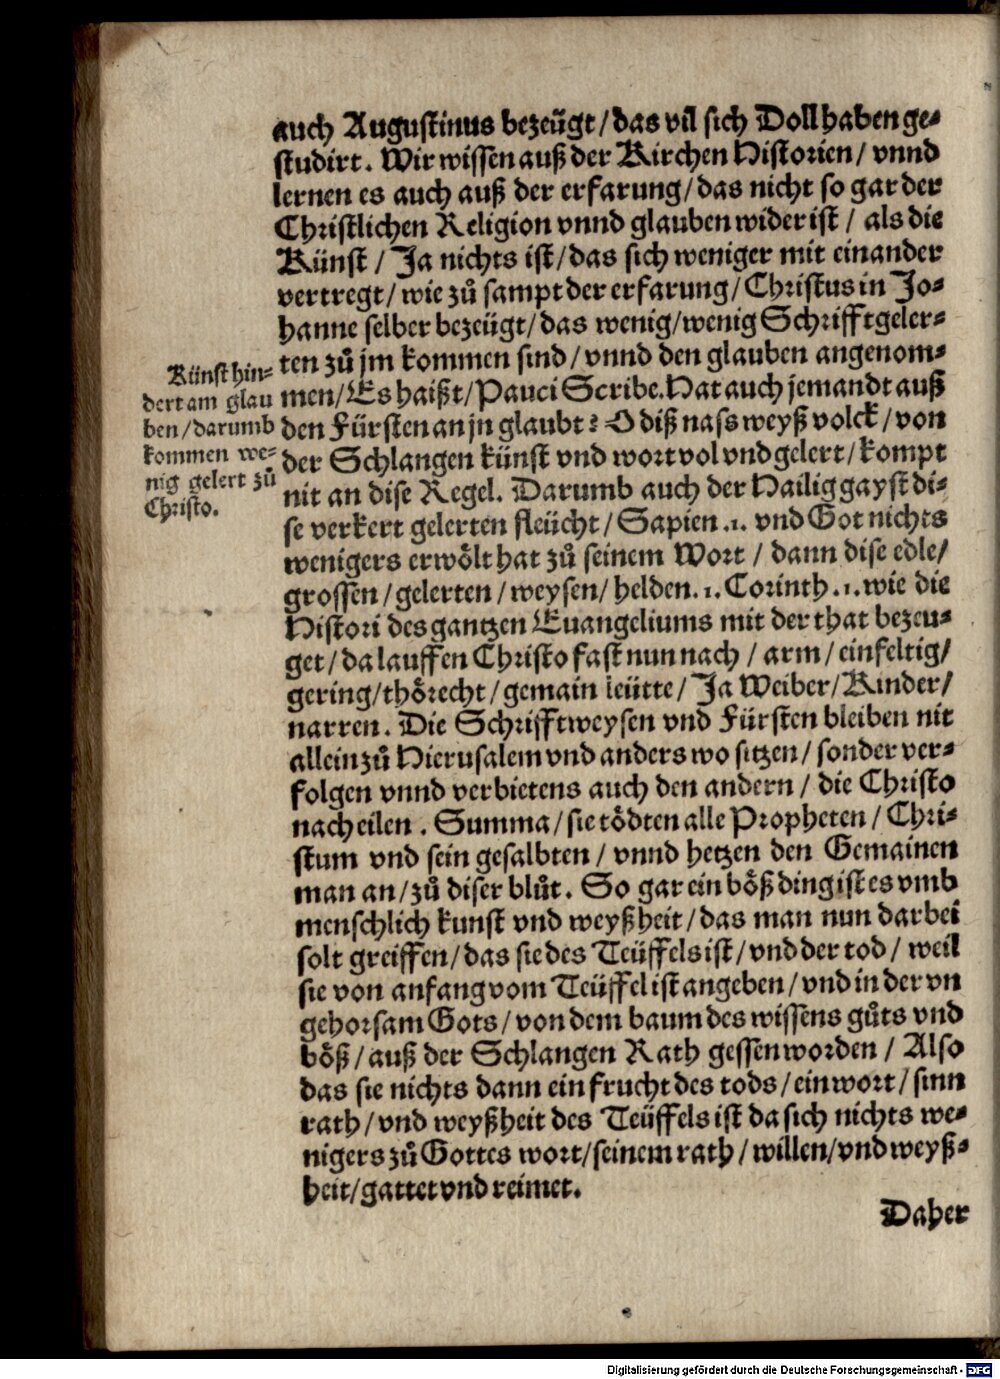 auch Augustinus bezeügt/das vil sich Doll haben ge-
studirt. Wir wissen auß der Kirchen Historien/ vnnd
lernen es auch auß der erfarung/das nicht so gar der
Christlichen Religion vnnd glauben wider ist / als die
Künst / Ja nichts ist/das sich weniger mit einander
vertregt/wie zů sampt der erfarung/Christus in Jo-
hanne selber bezeügt/das wenig/wenig Schrifftgeler-
ten zů jm kommen sind/vnnd den glauben angenom-
men/Es haißt/Pauci Scribe. Hat auch jemandt auß
den Fürsten an jn glaubt? O diß nasweyß volck/von
der Schlangen künst vnd wort vol vnd gelert/kompt
nit an dise Regel. Darumb auch der Hailig gayst di-
se verkert gelerten fleücht/Sapien .1. vnd Got nichts
wenigers erwölt hat zů seinem Wort / dann dise edle/
grossen/gelerten/weysen/helden.1.Corinth.1.wie die
Histori des gantzen Euangeliums mit der that bezeu-
get/da lauffen Christo fast nun nach / arm/einfeltig/
gering/thörecht/gemain leütte/Ja Weiber/Kinder/
narren. Die Schrifftweysen vnd Fürsten bleiben nit
allein zů Hierusalem vnd anders wo sitzen/sonder ver-
folgen vnnd verbietens auch den andern / die Christo
nach eilen . Summa/sie tödten alle Propheten/Chri-
stum vnd sein gesalbten/vnnd hetzen den Gemainen
man an/zů diser blůt. So gar ein böß ding ist es vmb
menschlich kunst vnd weyßheit/das man nun darbei
solt greiffen/das sie des Teüffels ist/vnd der tod/ weil
sie von anfang vom Teüffel ist angeben/vnd in der vn
gehorsam Gots/von dem baum des wissens gůts vnd
böß/auß der Schlangen Rath gessen worden / Also
das sie nichts dann ein frucht des tods/ein wort/sinn
rath/vnd weyßheit des Teüffels ist da sich nichts we-
nigers zů Gottes wort/seinem rath/willen/vnd weyß-
heit/gattet vnd reimet.
Daher
Künst hin-
dert am glau
ben/darumb
kommen we-
nig gelert zů
Christo.
Digitalisierung gefördert durch die Deutsche Forschungsgemeinschaft - DFG